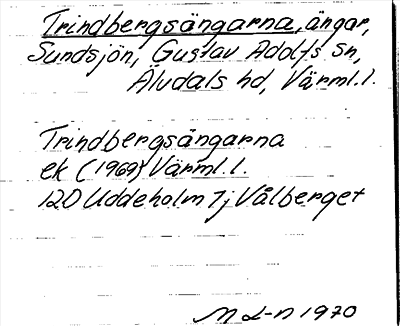 Trindbergsängarna, ängar,
Sundsjön, Gustav Adolfs sn,
Älvdals hd, Värml.l.
Trindbergsängarna
ek (1969) Värml.l.
12D Uddeholm 7j Vålberget
M L-n 1970